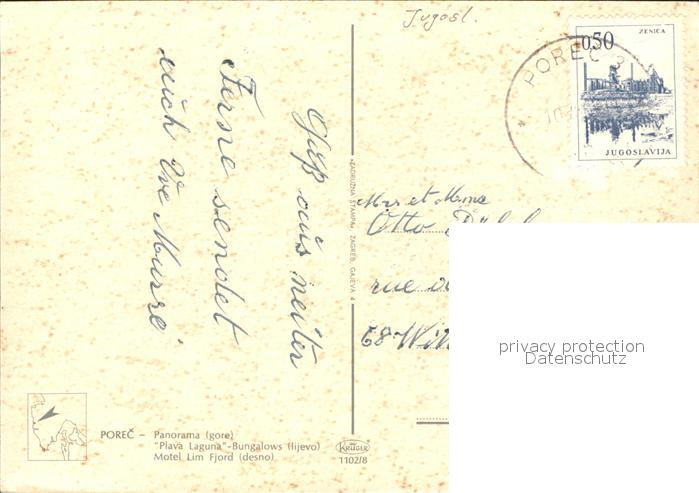 Jugosl.
0.50
ZENICA
JUGOSLAVIJA
POREČ 3
Gruß aus weiter
Ferne sendet
euch Eve Murre
"ZADRUŽNA ŠTAMPA", ZAGREB, GAJEVA 4
Mrs et Mme
Otto
rue
68 Wi
privacy protection
Datenschutz
POREČ – Panorama (gore)
"Plava Laguna"-Bungalows (lijevo)
Motel Lim Fjord (desno)
KRÜGER
1102/8